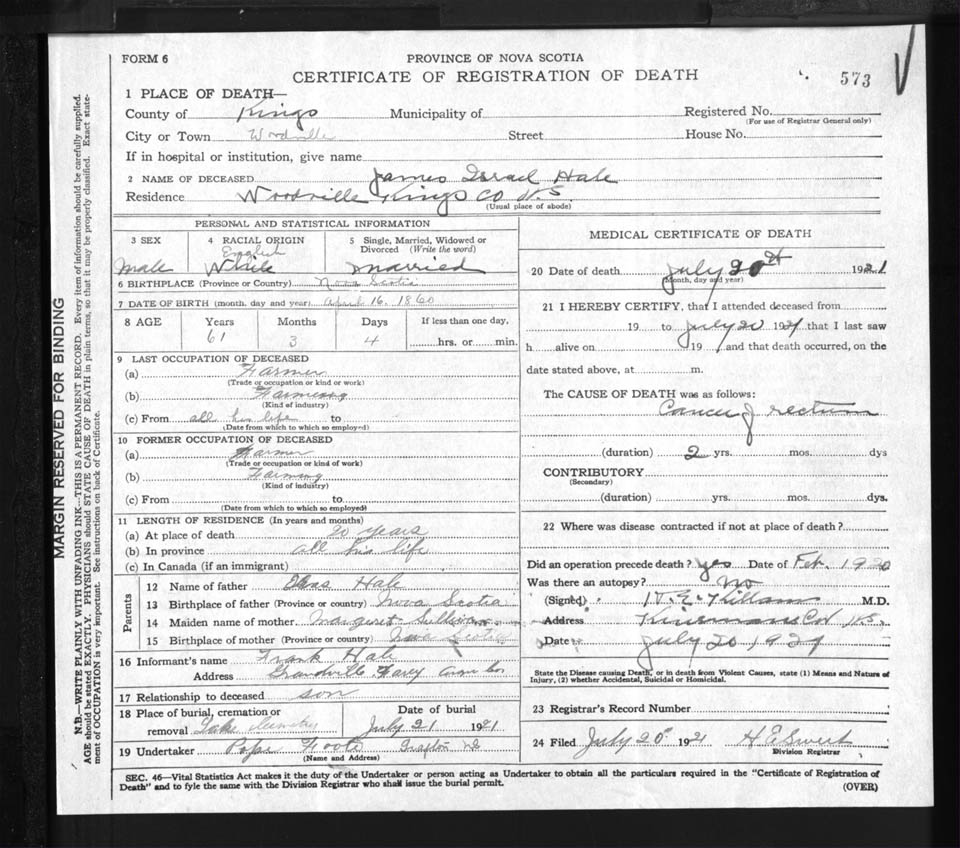 FORM 6
PROVINCE OF NOVA SCOTIA
CERTIFICATE OF REGISTRATION OF DEATH
573
1 PLACE OF DEATH—
County of Kings Municipality of Registered No.
(For use of Registrar General only)
City or Town Woodville Street House No.
If in hospital or institution, give name
2 NAME OF DECEASED James Israel Hale
Residence Woodville Kings Co N.S.
(Usual place of abode)
PERSONAL AND STATISTICAL INFORMATION
3 SEX 4 RACIAL ORIGIN 5 Single, Married, Widowed or
Divorced (Write the word)
English
Male White Married
6 BIRTHPLACE (Province or Country) Nova Scotia
7 DATE OF BIRTH (month, day and year) April 16. 1860
8 AGE Years Months Days If less than one day,
61 3 4 hrs. or min.
9 LAST OCCUPATION OF DECEASED
(a) Farmer
(Trade or occupation or kind or work)
(b) Farming
(Kind of industry)
(c) From all his life to
(Date from which to which so employed)
10 FORMER OCCUPATION OF DECEASED
(a) Farmer
(Trade or occupation or kind of work)
(b) Farming
(Kind of industry)
(c) From to
(Date from which to which so employed)
11 LENGTH OF RESIDENCE (In years and months)
(a) At place of death 20 years
(b) In province all his life
(c) In Canada (if an immigrant)
Parents
12 Name of father Hale
13 Birthplace of father (Province or country) Nova Scotia
14 Maiden name of mother Margaret Sullivan
15 Birthplace of mother (Province or country) Nova Scotia
16 Informant's name Frank Hale
Address
17 Relationship to deceased son
18 Place of burial, cremation or
removal Date of burial
July 21 1921
19 Undertaker Foote Grafton
(Name and Address)
MEDICAL CERTIFICATE OF DEATH
20 Date of death July 20th 1921
(Month, day and year)
21 I HEREBY CERTIFY, that I attended deceased from
19 to July 20 1921 that I last saw
h alive on 19 and that death occurred, on the
date stated above, at m.
The CAUSE OF DEATH was as follows:
Cancer of rectum
(duration) 2 yrs. mos. dys
CONTRIBUTORY
(Secondary)
(duration) yrs. mos. dys.
22 Where was disease contracted if not at place of death?
Did an operation precede death? yes Date of Feb. 1920
Was there an autopsy? No
(Signed) Killam M.D.
Address N.S.
Date July 20 1921
State the Disease causing Death, or in death from Violent Causes, state (1) Means and Nature of
Injury, (2) whether Accidental, Suicidal or Homicidal.
23 Registrar's Record Number
24 Filed July 20 1921
Division Registrar
SEC. 46—Vital Statistics Act makes it the duty of the Undertaker or person acting as Undertaker to obtain all the particulars required in the "Certificate of Registration of
Death" and to fyle the same with the Division Registrar who shall issue the burial permit.
(OVER)
MARGIN RESERVED FOR BINDING
N.B.—WRITE PLAINLY WITH UNFADING INK—THIS IS A PERMANENT RECORD. Every item of information should be carefully supplied.
AGE should be stated EXACTLY. PHYSICIANS should STATE CAUSE OF DEATH in plain terms, so that it may be properly classified. Exact state-
ment of OCCUPATION is very important. See instructions on back of Certificate.